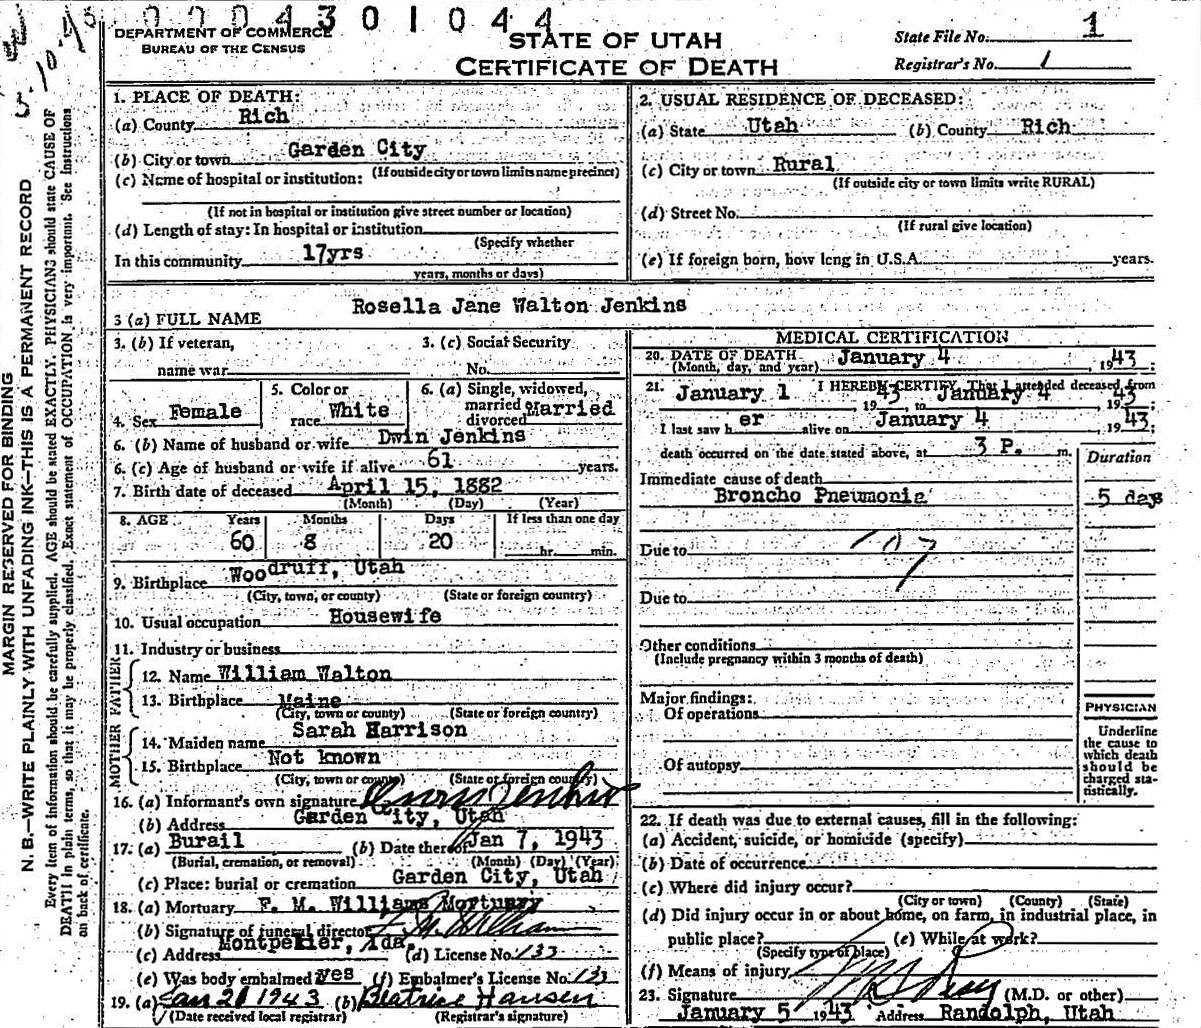 0004301044
DEPARTMENT OF COMMERCE
BUREAU OF THE CENSUS
STATE OF UTAH
CERTIFICATE OF DEATH
State File No. 1
Registrar's No. 1
MARGIN RESERVED FOR BINDING
N. B.—WRITE PLAINLY WITH UNFADING INK—THIS IS A PERMANENT RECORD
Every item of information should be carefully supplied. AGE should be stated EXACTLY. PHYSICIANS should state CAUSE OF
DEATH in plain terms, so that it may be properly classified. Exact statement of OCCUPATION is very important. See instructions
on back of certificate.
1. PLACE OF DEATH:
(a) County Rich
(b) City or town Garden City
(If outside city or town limits name precinct)
(c) Name of hospital or institution:
(If not in hospital or institution give street number or location)
(d) Length of stay: In hospital or institution
(Specify whether
In this community 17yrs
years, months or days)
2. USUAL RESIDENCE OF DECEASED:
(a) State Utah (b) County Rich
(c) City or town Rural
(If outside city or town limits write RURAL)
(d) Street No.
(If rural give location)
(e) If foreign born, how long in U.S.A. years.
3 (a) FULL NAME Rosella Jane Walton Jenkins
3. (b) If veteran,
name war
3. (c) Social Security
No.
4. Sex Female
5. Color or
race White
6. (a) Single, widowed,
married
divorced Married
6. (b) Name of husband or wife Dwin Jenkins
6. (c) Age of husband or wife if alive 61 years.
7. Birth date of deceased April 15, 1882
(Month) (Day) (Year)
8. AGE Years Months Days If less than one day
60 8 20 hr. min.
9. Birthplace Woodruff, Utah
(City, town, or county) (State or foreign country)
10. Usual occupation Housewife
11. Industry or business
FATHER
12. Name William Walton
13. Birthplace Maine
(City, town or county) (State or foreign country)
MOTHER
14. Maiden name Sarah Harrison
15. Birthplace Not known
(City, town or county) (State or foreign country)
16. (a) Informant's own signature Dwin Jenkins
(b) Address Garden City, Utah
17. (a) Burail (b) Date thereof Jan 7, 1943
(Burial, cremation, or removal) (Month) (Day) (Year)
(c) Place: burial or cremation Garden City, Utah
18. (a) Mortuary F. M. Williams Mortuary
(b) Signature of funeral director F. M. Williams
(c) Address Montpelier, Ida. (d) License No. 133
(e) Was body embalmed yes (f) Embalmer's License No. 133
19. (a) Jan 21 1943 (b) Beatrice Hansen
(Date received local registrar) (Registrar's signature)
MEDICAL CERTIFICATION
20. DATE OF DEATH January 4, 1943;
(Month, day, and year)
21. I HEREBY CERTIFY, That I attended deceased from
January 1 1943, to January 4 1943;
I last saw her alive on January 4 1943;
death occurred on the date stated above, at 3 P. m.
Duration
Immediate cause of death
Broncho Pneumonia 5 days
Due to 107
Due to
Other conditions
(Include pregnancy within 3 months of death)
Major findings:
Of operations
Of autopsy
PHYSICIAN
Underline
the cause to
which death
should be
charged sta-
tistically.
22. If death was due to external causes, fill in the following:
(a) Accident, suicide, or homicide (specify)
(b) Date of occurrence
(c) Where did injury occur?
(City or town) (County) (State)
(d) Did injury occur in or about home, on farm, in industrial place, in
public place? (e) While at work?
(Specify type of place)
(f) Means of injury
23. Signature (M.D. or other)
January 5 1943 Address Randolph, Utah